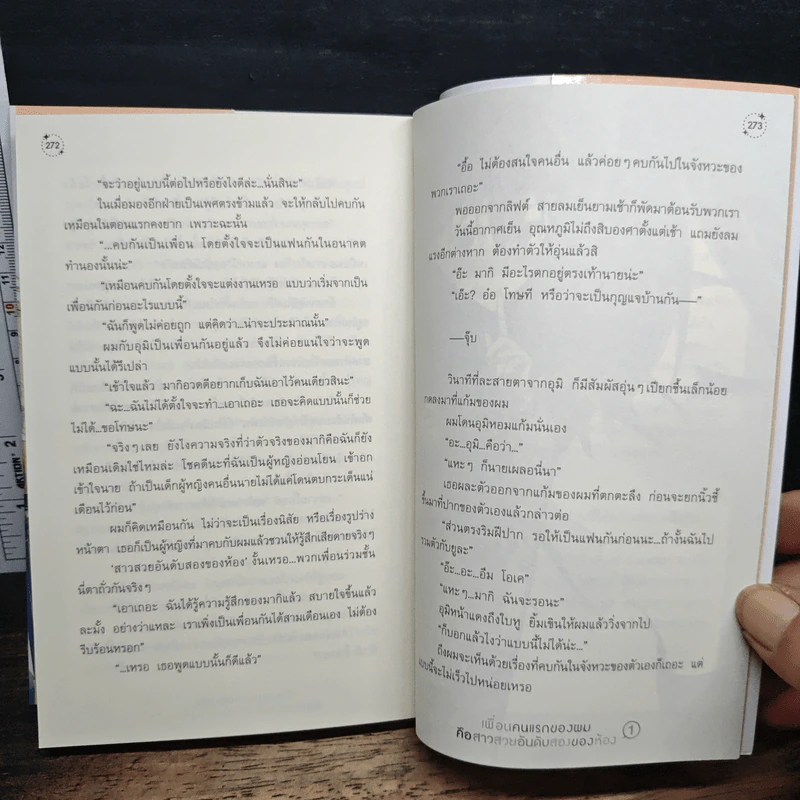 272
“จะว่าอยู่แบบนี้ต่อไปหรือยังไงดีล่ะ...นั่นสินะ”
ในเมื่อมองอีกฝ่ายเป็นเพศตรงข้ามแล้ว จะให้กลับไปคบกัน
เหมือนในตอนแรกคงยาก เพราะฉะนั้น
“...คบกันเป็นเพื่อน โดยตั้งใจจะเป็นแฟนกันในอนาคต
ทำนองนั้นน่ะ”
“เหมือนคบกันโดยตั้งใจจะแต่งงานเหรอ แบบว่าเริ่มจากเป็น
เพื่อนกันก่อนอะไรแบบนี้”
“ฉันก็พูดไม่ค่อยถูก แต่คิดว่า...น่าจะประมาณนั้น”
ผมกับอุมิเป็นเพื่อนกันอยู่แล้ว จึงไม่ค่อยแน่ใจว่าจะพูด
แบบนั้นได้รึเปล่า
“เข้าใจแล้ว มากิอวดดีอยากเก็บฉันเอาไว้คนเดียวสินะ”
“ฉะ...ฉันไม่ได้ตั้งใจจะทำ...เอาเถอะ เธอจะคิดแบบนั้นก็ช่วย
ไม่ได้...ขอโทษนะ”
“จริงๆ เลย ยังไงความจริงที่ว่าตัวจริงของมากิคือฉันก็ยัง
เหมือนเดิมใช่ไหมล่ะ โชคดีนะที่ฉันเป็นผู้หญิงอ่อนโยน เข้าอก
เข้าใจนาย ถ้าเป็นเด็กผู้หญิงคนอื่นนายไม่ได้แค่โดนตบกระเด็นแน่
เตือนไว้ก่อน”
ผมก็คิดเหมือนกัน ไม่ว่าจะเป็นเรื่องนิสัย หรือเรื่องรูปร่าง
หน้าตา เธอก็เป็นผู้หญิงที่มาคบกับผมแล้วชวนให้รู้สึกเสียดายจริงๆ
‘สาวสวยอันดับสองของห้อง’ งั้นเหรอ...พวกเพื่อนร่วมชั้น
นี่ตาถั่วกันจริงๆ
“เอาเถอะ ฉันได้รู้ความรู้สึกของมากิแล้ว สบายใจขึ้นแล้ว
ละมั้ง อย่างว่าแหละ เราเพิ่งเป็นเพื่อนกันได้สามเดือนเอง ไม่ต้อง
รีบร้อนหรอก”
“...เหรอ เธอพูดแบบนั้นก็ดีแล้ว”
273
“อื้อ ไม่ต้องสนใจคนอื่น แล้วค่อยๆ คบกันไปในจังหวะของ
พวกเราเถอะ”
พอออกจากลิฟต์ สายลมเย็นยามเช้าก็พัดมาต้อนรับพวกเรา
วันนี้อากาศเย็น อุณหภูมิไม่ถึงสิบองศาตั้งแต่เช้า แถมยังลม
แรงอีกต่างหาก ต้องทำตัวให้อุ่นแล้วสิ
“อ๊ะ มากิ มีอะไรตกอยู่ตรงเท้านายน่ะ”
“เอ๊ะ? อ๋อ โทษที หรือว่าจะเป็นกุญแจบ้านกัน—”
—จุ๊บ
วินาทีที่ละสายตาจากอุมิ ก็มีสัมผัสอุ่นๆ เปียกชื้นเล็กน้อย
กดลงมาที่แก้มของผม
ผมโดนอุมิหอมแก้มนั่นเอง
“อะ...อุมิ...คือว่า...”
“แหะๆ ก็นายเผลอนี่นา”
เธอผละตัวออกจากแก้มของผมที่ตกตะลึง ก่อนจะยกนิ้วชี้
ขึ้นมาที่ปากของตัวเองแล้วกล่าวต่อ
“ส่วนตรงริมฝีปาก รอให้เป็นแฟนกันก่อนนะ...ถ้างั้นฉันไป
รวมตัวกับยูละ”
“อ๊ะ...อะ...อืม โอเค”
“แหะๆ...มากิ ฉันจะรอนะ”
อุมิหน้าแดงถึงใบหู ยิ้มเขินให้ผมแล้ววิ่งจากไป
“ก็บอกแล้วไงว่าแบบนี้ไม่ได้น่ะ...”
ถึงผมจะเห็นด้วยเรื่องที่คบกันในจังหวะของตัวเองก็เถอะ แต่
แบบนี้จะไม่เร็วไปหน่อยเหรอ
เพื่อนคนแรกของผม
คือสาวสวยอันดับสองของห้อง 1